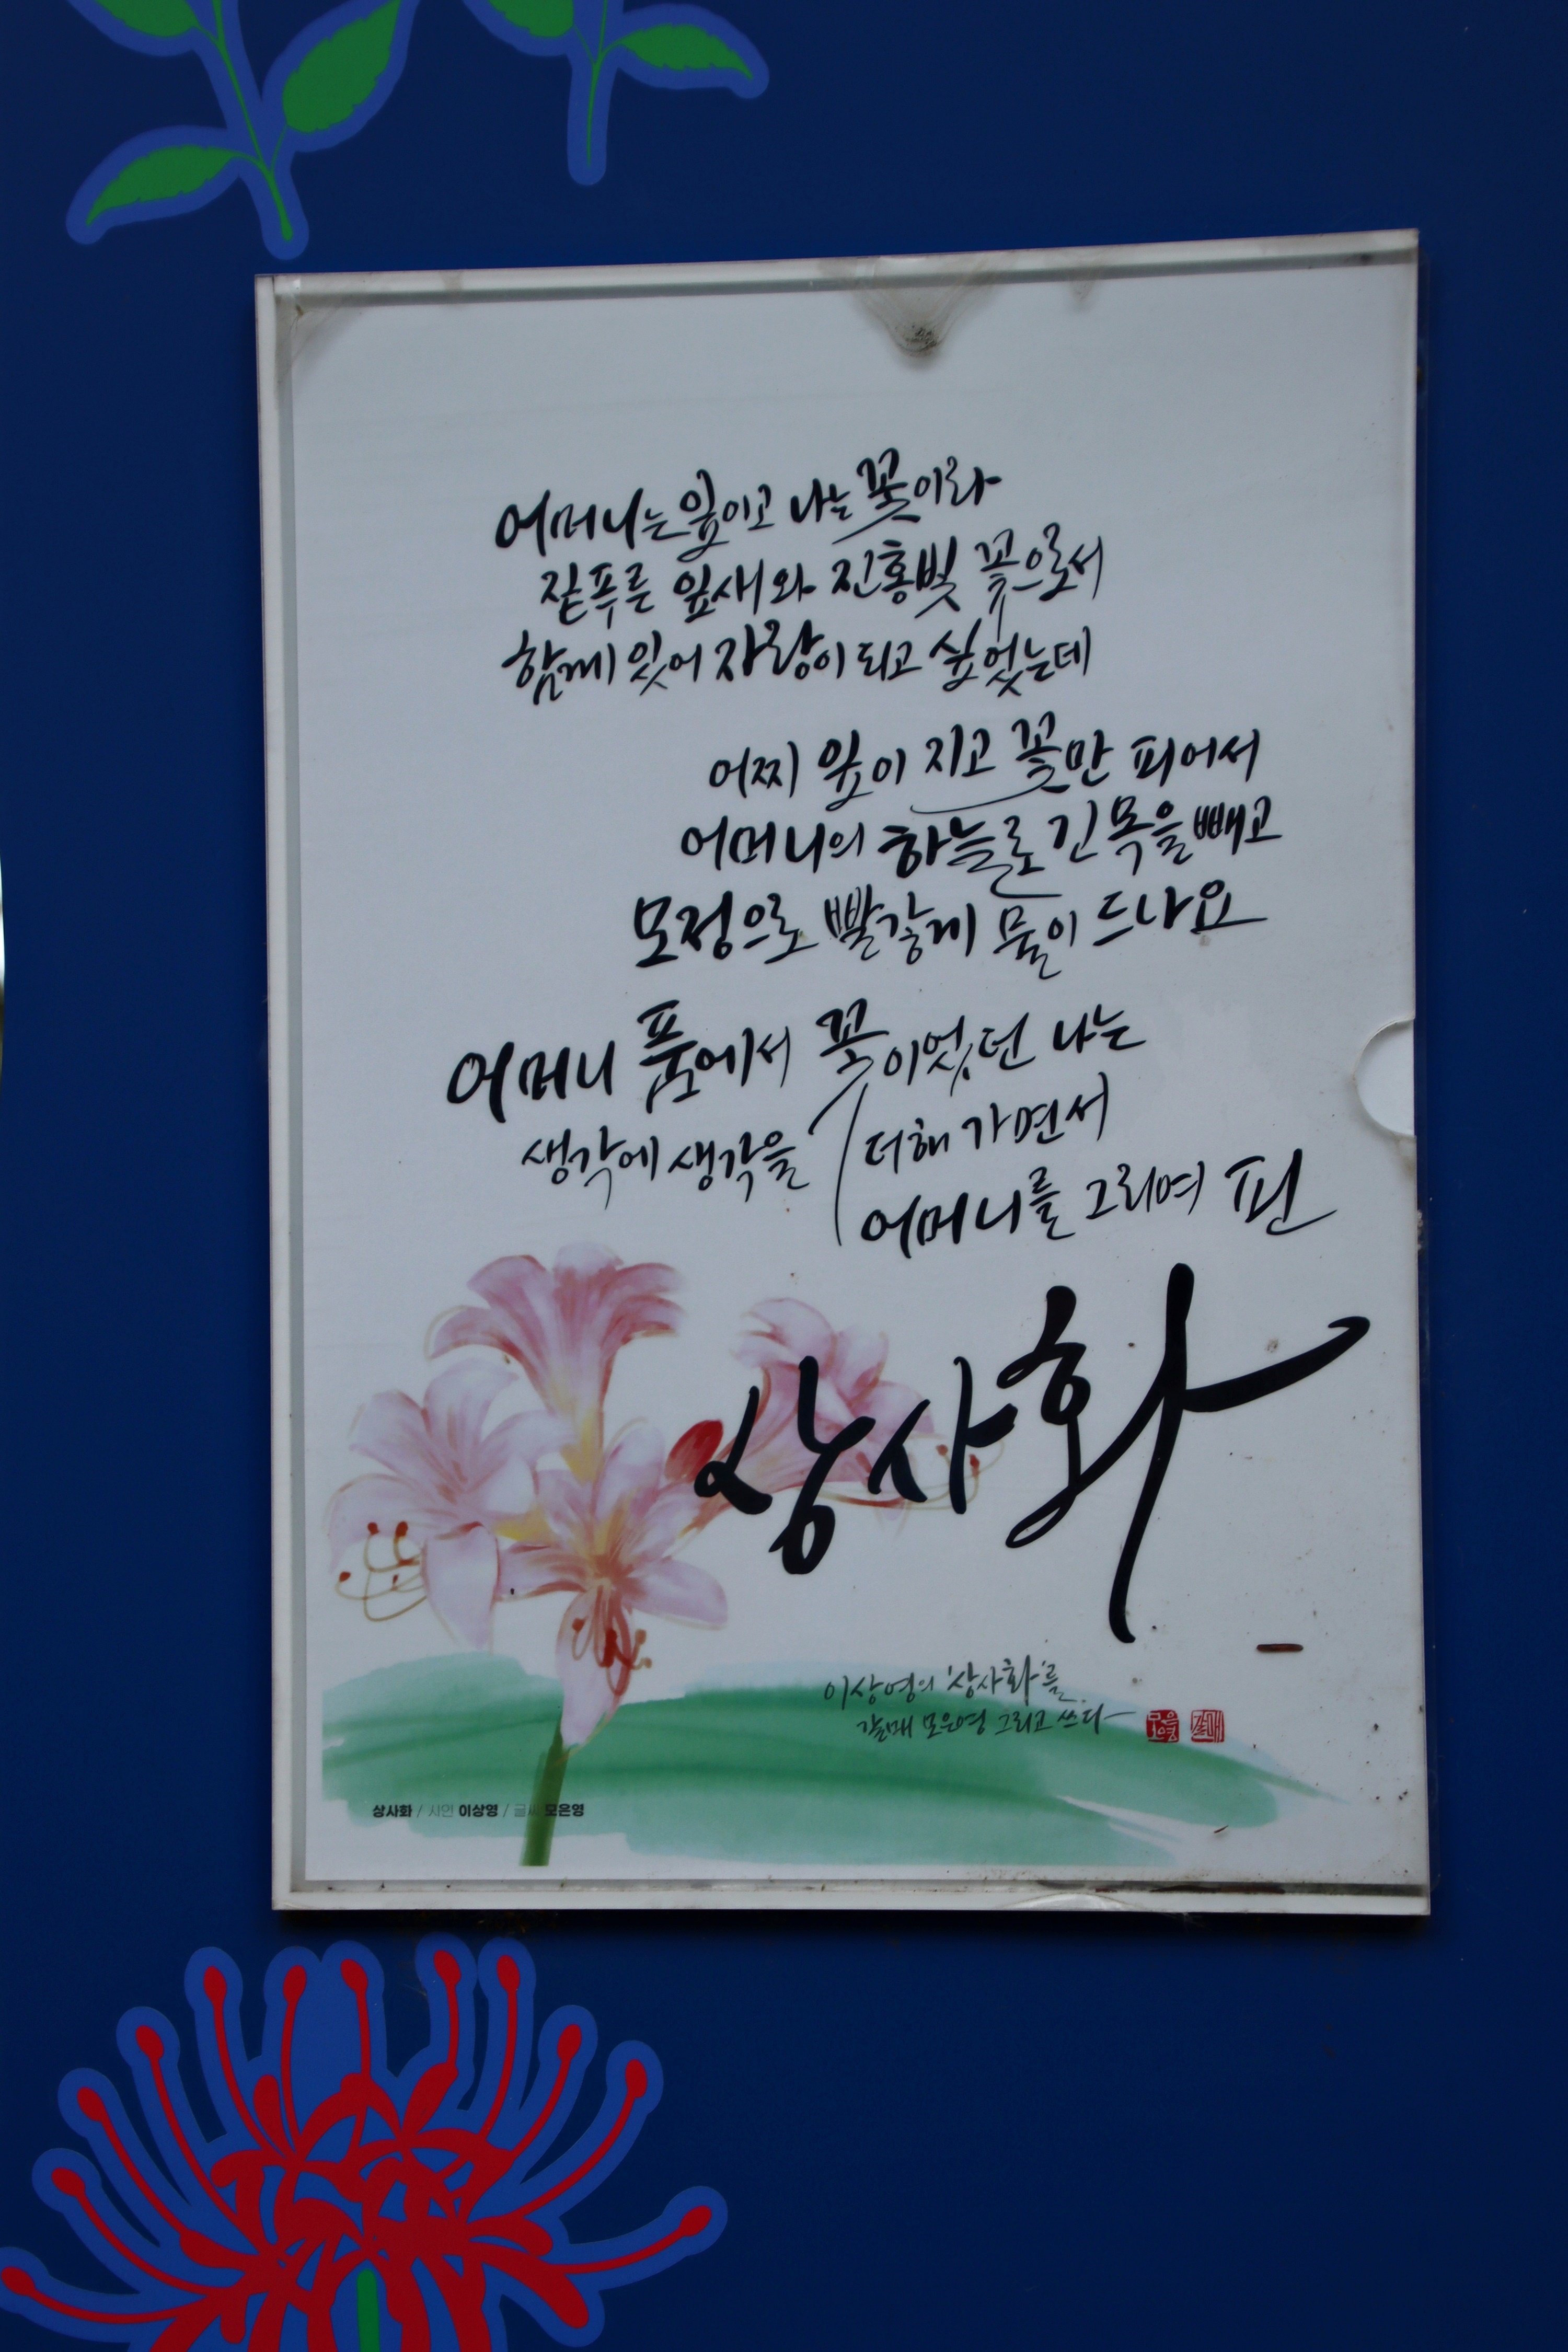 어머니는 잎이고 나는 꽃이라
짙푸른 잎새와 진홍빛 꽃으로서
함께 있어 자랑이 되고 싶었는데
어찌 잎이 지고 꽃만 피어서
어머니의 하늘로 긴 목을 빼고
모정으로 빨갛게 물이 드나요
어머니 품에서 꽃이었던 나는
생각에 생각을 더해 가면서
어머니를 그리며 핀
상사화
이상영의 '상사화'를
갈매 모은영 그리고 쓰다
모은영 갈매
상사화 / 시인 이상영 / 글씨 모은영